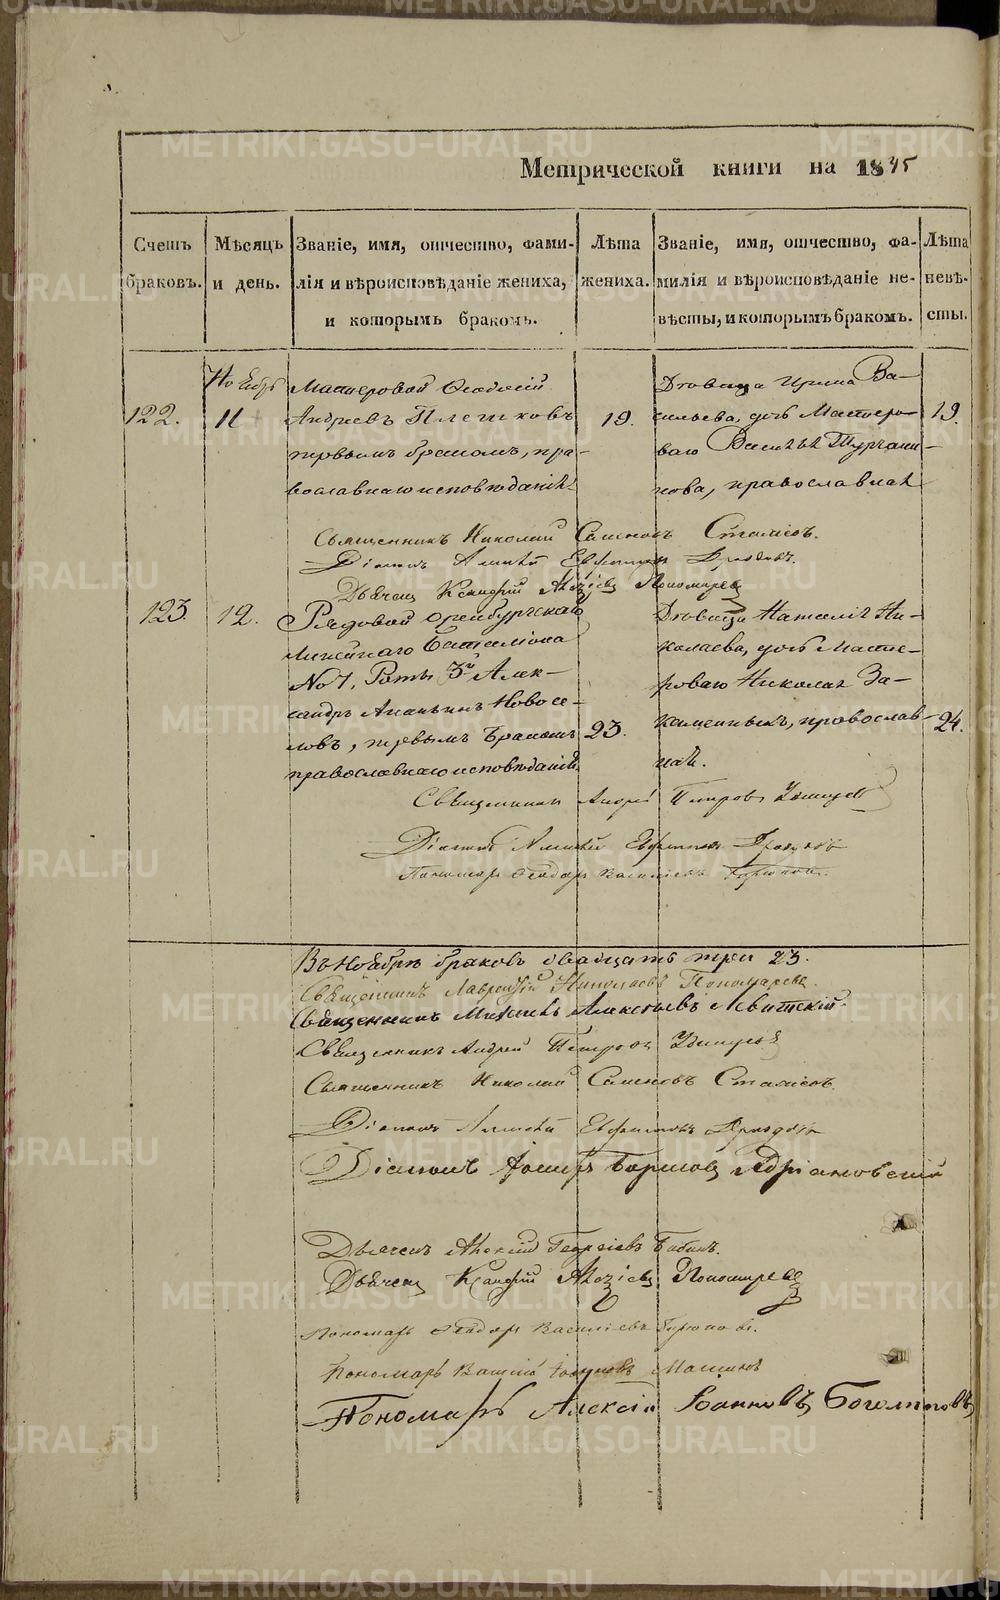 Метрической книги на 1845
Счетъ браковъ.
Мѣсяцъ и день.
Званіе, имя, отчество, фами-
лія и вѣроисповѣданіе жениха,
и которымъ бракомъ.
Лѣта жениха.
Званіе, имя, отчество, фа-
милія и вѣроисповѣданіе не-
вѣсты, и которымъ бракомъ.
Лѣта невѣ-
сты.
Ноябрь
122.
11
Мастеровой Ѳеодосій
Андреевъ Плешковъ
первымъ бракомъ, пра-
вославнаго исповѣданія
19.
Дѣвица Ирина Ва-
сильева, дочь Мастеро-
ваго Василья Турчани-
нова, православная
19.
Священникъ Николай Симеоновъ
Діаконъ Алексѣй Евфимовъ
Дьячекъ Алексіевъ Пономаревъ
123.
12.
Рядовой Оренбургскаго
Линейнаго Баталіона
№ 7, Роты 3й Алек-
сандръ Ананьинъ Новосе-
ловъ, первымъ бракомъ
православнаго исповѣданія
23.
Дѣвица Наталія Ни-
колаева, дочь Масте-
роваго Николая За-
каменныхъ, православ-
ная.
24.
Священникъ Андрей Петровъ Удинцевъ
Діаконъ Алексѣй Евфимовъ
Пономарь Ѳеодоръ Василіевъ
Въ Ноябрѣ браковъ двадцать три 23.
Священникъ Лаврентій Николаевъ Пономаревъ
Священникъ Михаилъ Алексѣевъ Левитскій.
Священникъ Андрей Петровъ Удинцевъ
Священникъ Николай Симеоновъ
Діаконъ Алексѣй Евфимовъ
Діаконъ Адріановскій
Дьячекъ Алексій Георгіевъ Бабинъ.
Дьячекъ Алексіевъ Пономаревъ
Пономарь Ѳеодоръ Василіевъ
Пономарь Василій
Пономарь Алексій Іоанновъ Боголюбовъ
METRIKI.GASO-URAL.RU